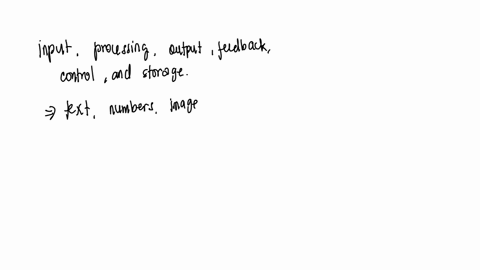 input, processing, output, feedback,
control, and storage.
⇒ text, numbers, image